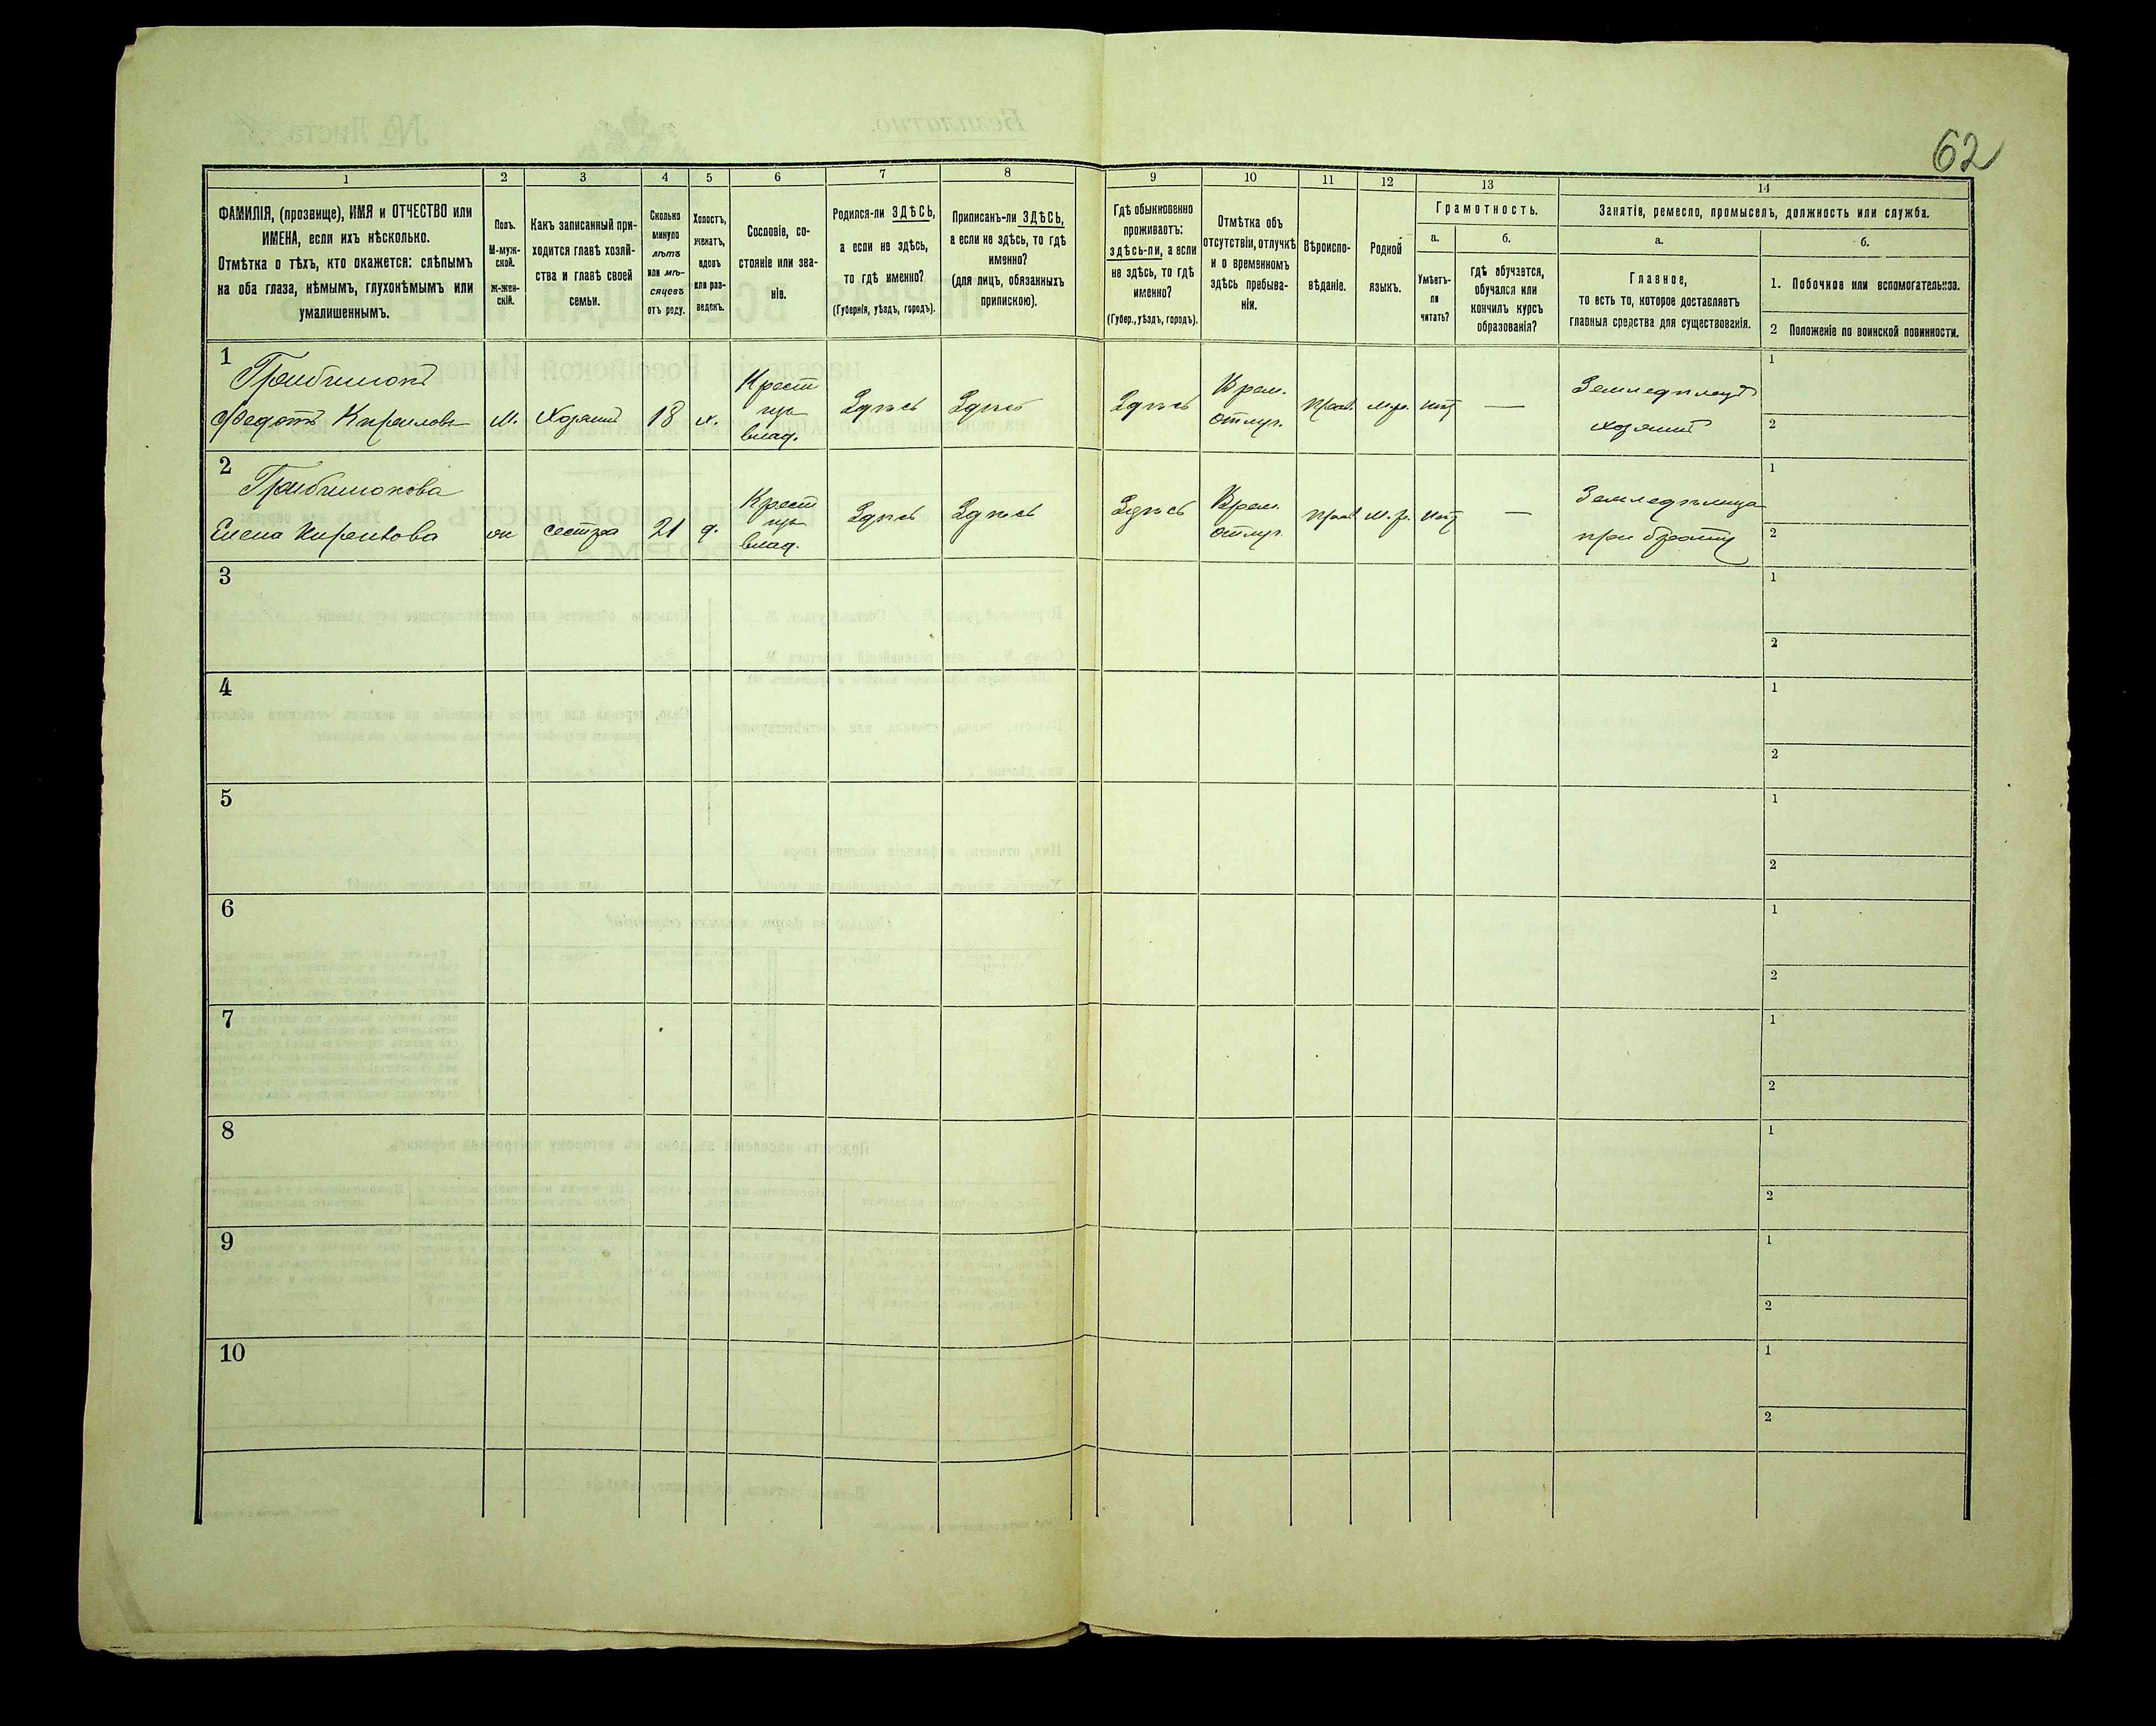 62
1 2 3 4 5 6 7 8 9 10 11 12 13 14
ФАМИЛІЯ, (прозвище), ИМЯ и ОТЧЕСТВО или
ИМЕНА, если ихъ нѣсколько.
Отмѣтка о тѣхъ, кто окажется: слѣпымъ
на оба глаза, нѣмымъ, глухонѣмымъ или
умалишеннымъ.
Полъ.
М-муж-
ской.
Ж-жен-
скій.
Какъ записанный при-
ходится главѣ хозяй-
ства и главѣ своей
семьи.
Сколько
минуло
лѣтъ
или мѣ-
сяцевъ
отъ роду.
Холостъ,
женатъ,
вдовъ
или раз-
веденъ.
Сословіе, со-
стояніе или зва-
ніе.
Родился-ли ЗДѢСЬ,
а если не здѣсь,
то гдѣ именно?
(Губернія, уѣздъ, городъ).
Приписанъ-ли ЗДѢСЬ,
а если не здѣсь, то гдѣ
именно?
(для лицъ, обязанныхъ
припискою).
Гдѣ обыкновенно
проживаетъ:
здѣсь-ли, а если
не здѣсь, то гдѣ
именно?
(Губер., уѣздъ, городъ).
Отмѣтка объ
отсутствіи, отлучкѣ
и о временномъ
здѣсь пребыва-
ніи.
Вѣроиспо-
вѣданіе.
Родной
языкъ.
Грамотность.
а.
Умѣетъ-
ли
читать?
б.
гдѣ обучается,
обучался или
кончилъ курсъ
образованія?
Занятіе, ремесло, промыселъ, должность или служба.
а.
Главное,
то есть то, которое доставляетъ
главныя средства для существованія.
б.
1. Побочное или вспомогательное.
2 Положеніе по воинской повинности.
1
Федотъ Кириловъ М. Хозяинъ 18 х.
Крест
влад.
Здѣсь Здѣсь Здѣсь
Врем.
отлуч.
прав. м.р. нѣтъ —
Земледѣлецъ
хозяинъ
1
2
2
Елена Кирилова ж сестра 21 д.
Крест
влад.
Здѣсь Здѣсь Здѣсь
Врем.
отлуч.
прав. м.р. нѣтъ —
Земледѣлица
при братѣ
1
2
3
1
2
4
1
2
5
1
2
6
1
2
7
1
2
8
1
2
9
1
2
10
1
2